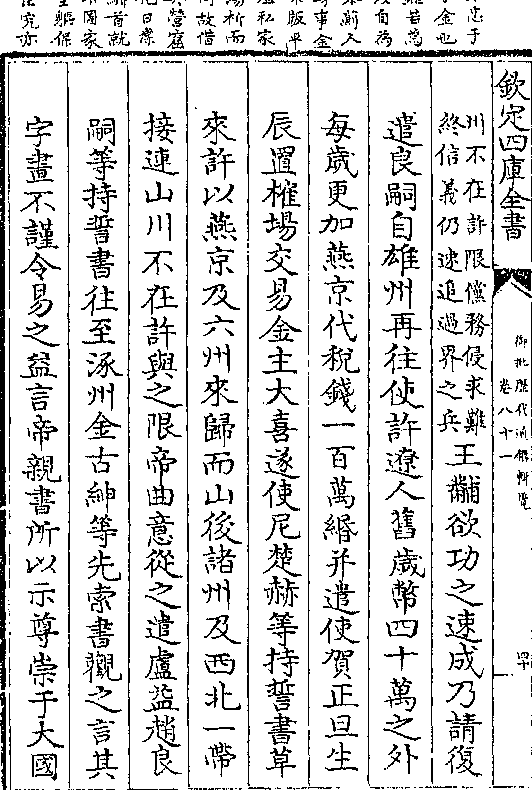 欽定四庫全書
御批歷代通鑑輯覽
卷八十一
州不在許限儻務侵求難
終信義仍速追過界之兵
王黼欲功之速成乃請復
遣良嗣自雄州再往使許遼人舊歲幣四十萬之外
每歲更加燕京代稅錢一百萬緡并遣使賀正旦生
辰置榷場交易金主大喜遂使尼楚赫等持誓書草
來許以燕京及六州來歸而山後諸州及西北一帶
接連山川不在許與之限帝曲意從之遣盧益趙良
嗣等持誓書往至涿州金古紳等先索書觀之言其
字畫不謹令易之益言帝親書所以示尊崇于大國
金也
事金
版平
私家
析而
何故借
營窟
日業
首就
國家
軀保
究亦